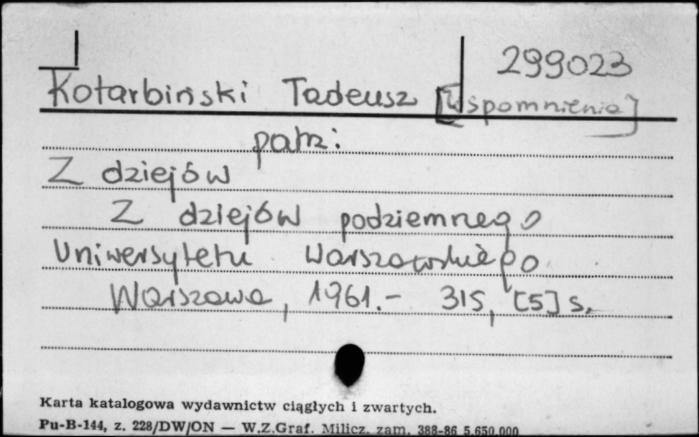 299023
Kotarbiński Tadeusz [Wspomnienie]
patrz:
Z dziejów
Z dziejów podziemnego
Uniwersytetu Warszawskiego
Warszawa, 1961.- 315, [5] s.
Karta katalogowa wydawnictw ciągłych i zwartych.
Pu-B-144, z. 228/DW/ON — W.Z.Graf. Milicz, zam. 388-86 5.650.000